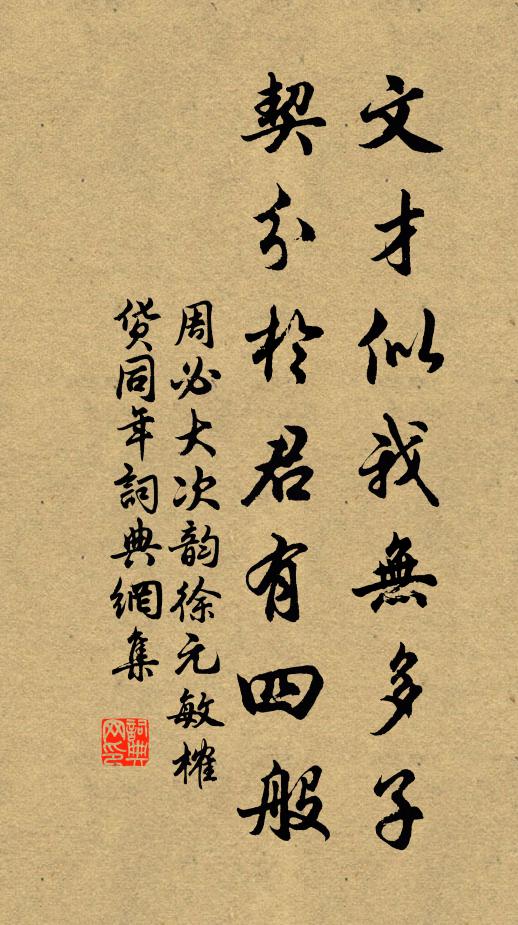 文才似我無多子
契分於君有四般
周必大次韵徐元敏榷
货同年詞典網集
詞典網印